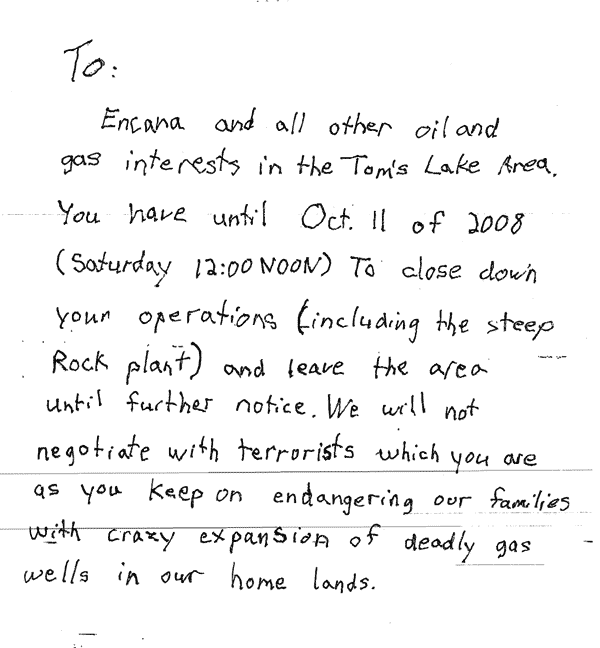 To:
Encana and all other oil and
gas interests in the Tom's Lake Area.
You have until Oct. 11 of 2008
(Saturday 12:00 NOON) To close down
your operations (including the steep
Rock plant) and leave the area
until further notice. We will not
negotiate with terrorists which you are
as you keep on endangering our families
with crazy expansion of deadly gas
wells in our home lands.